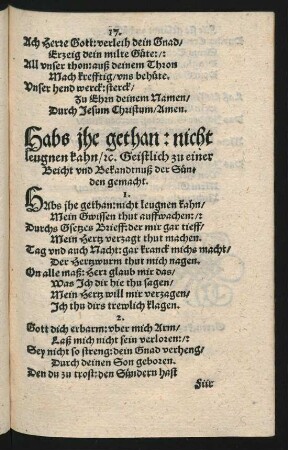 17.
Ach Herre Gott: verleih dein Gnad/
Erzeig dein milte Güte:/:
All vnser thon: auß deinem Thron
Mach krefftig/ vns behüte.
Vnser hend werck: sterck/
Zu Ehrn deinem Namen/
Durch Jesum Christum/ Amen.
Habs jhe gethan: nicht
leugnen kahn/ ꝛc. Geistlich zu einer
Beicht vnd Bekandtnuß der Sün-
den gemacht.
1.
HAbs jhe gethan: nicht leugnen kahn/
Mein Gwissen thut auffwachen:/:
Durchs Gsetzes Brieff: der mir gar tieff/
Mein Hertz verzagt thut machen.
Tag vnd auch Nacht: gar kranck michs macht/
Der Hertzwurm thut mich nagen.
On alle maß: Herr glaub mir das/
Was Jch dir hie thu sagen/
Mein Hertz will mir verzagen/
Jch thu dirs trewlich klagen.
2.
Gott dich erbarm: vber mich Arm/
Laß mich nicht sein verloren:/:
Sey nicht so streng: dein Gnad verheng/
Durch deinen Son geboren.
Den du zu trost: den Sündern hast
Für